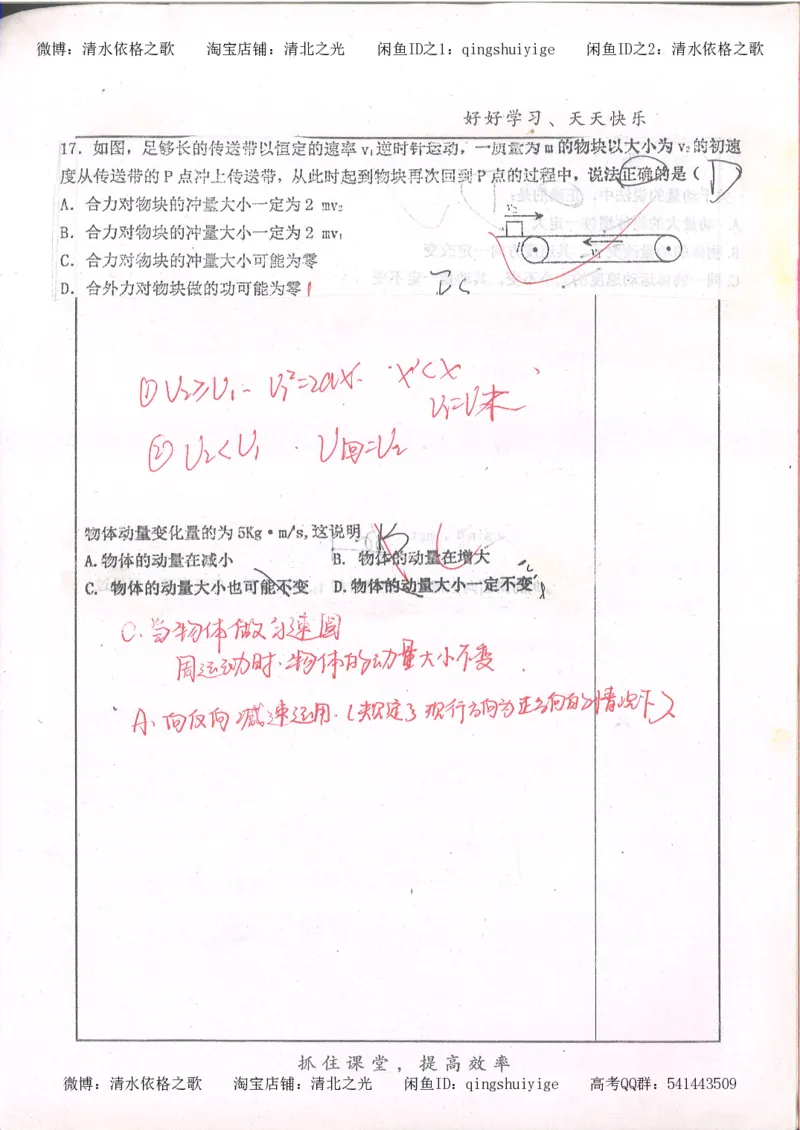 微博：清水依格之歌 淘宝店铺：清北之光 闲鱼ID之1：qingshuiyige 闲鱼ID之2：清水依格之歌
好好学习、天天快乐
17．如图，足够长的传送带以恒定的速率v₁逆时针运动，一质量为m的物块以大小为v₂的初速
度从传送带的P点冲上传送带，从此时起到物块再次回到P点的过程中，说法正确的是（ D ）
A．合力对物块的冲量大小一定为2 mv₂
B．合力对物块的冲量大小一定为2 mv₁
C．合力对物块的冲量大小可能为零
D．合外力对物块做的功可能为零
v₂
P
v₁
① V₂≥V₁ V₂²=2ax x'<x
V₁=V末
② V₂<V₁ V回=V₂
物体动量变化量的为5Kg·m/s,这说明
A.物体的动量在减小 B. 物体的动量在增大
C. 物体的动量大小也可能不变 D.物体的动量大小一定不变
C.当物体做匀速圆
周运动时.物体的动量大小不变
A.向反向减速运用.(规定了现行方向为正方向的情况下)
抓住课堂，提高效率
微博：清水依格之歌 淘宝店铺：清北之光 闲鱼ID：qingshuiyige 高考QQ群：541443509